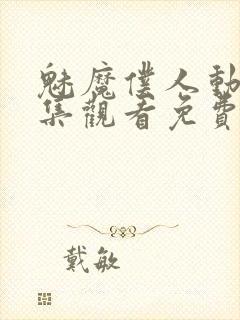 魅魔僕人動
集觀看免費
戴敏